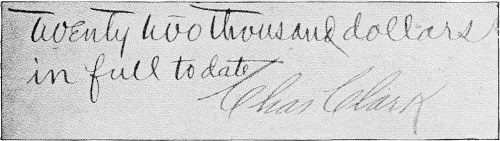 Twenty two thousand dollars
in full to date
Chas Clark